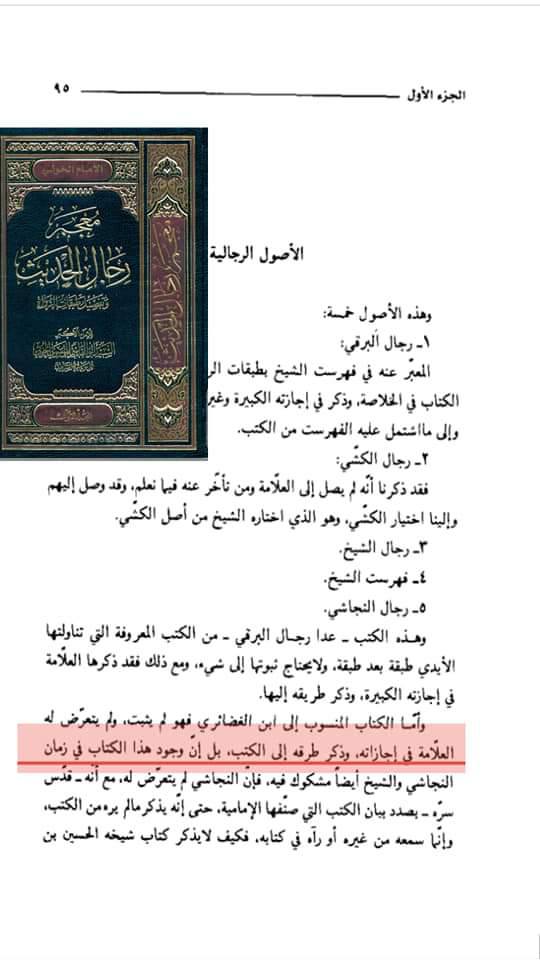 الجزء الأول
٩٥
الإمام الخوئي
معجم
رجال الحديث
وتفصيل طبقات الرواة
الأصول الرجالية
وهذه الأصول خمسة:
١ـ رجال البرقي:
المعبّر عنه في فهرست الشيخ بطبقات الر
الكتاب في الخلاصة، وذكر في إجازته الكبيرة وغير
وإلى مااشتمل عليه الفهرست من الكتب.
٢ـ رجال الكشّي:
فقد ذكرنا أنّه لم يصل إلى العلّامة ومن تأخّر عنه فيما نعلم، وقد وصل إليهم
وإلينا اختيار الكشّي، وهو الذي اختاره الشيخ من أصل الكشّي.
٣ـ رجال الشيخ.
٤ـ فهرست الشيخ.
٥ـ رجال النجاشي.
وهـذه الكتب ـ عدا رجـال البرقي ـ من الكتب المعروفة التي تناولتها
الأيدي طبقة بعد طبقة، ولايحتاج ثبوتها إلى شيء، ومع ذلك فقد ذكرها العلّامة
في إجازته الكبيرة، وذكر طريقه إليها.
وأمّـا الكتاب المنسوب إلى ابن الغضائري فهو لم يثبت، ولم يتعرّض له
العلّامة في إجازاته، وذكر طرقه إلى الكتب، بل إنّ وجود هذا الكتاب في زمان
النجاشي والشيخ أيضاً مشكوك فيه، فإنّ النجاشي لم يتعرّض له، مع أنّه ـ قدّس
سرّه ـ بصدد بيان الكتب التي صنّفها الإمامية، حتى إنّه يذكر مالم يره من الكتب،
وإنّما سمعه من غيره أو رآه في كتابه، فكيف لايذكر كتاب شيخه الحسين بن